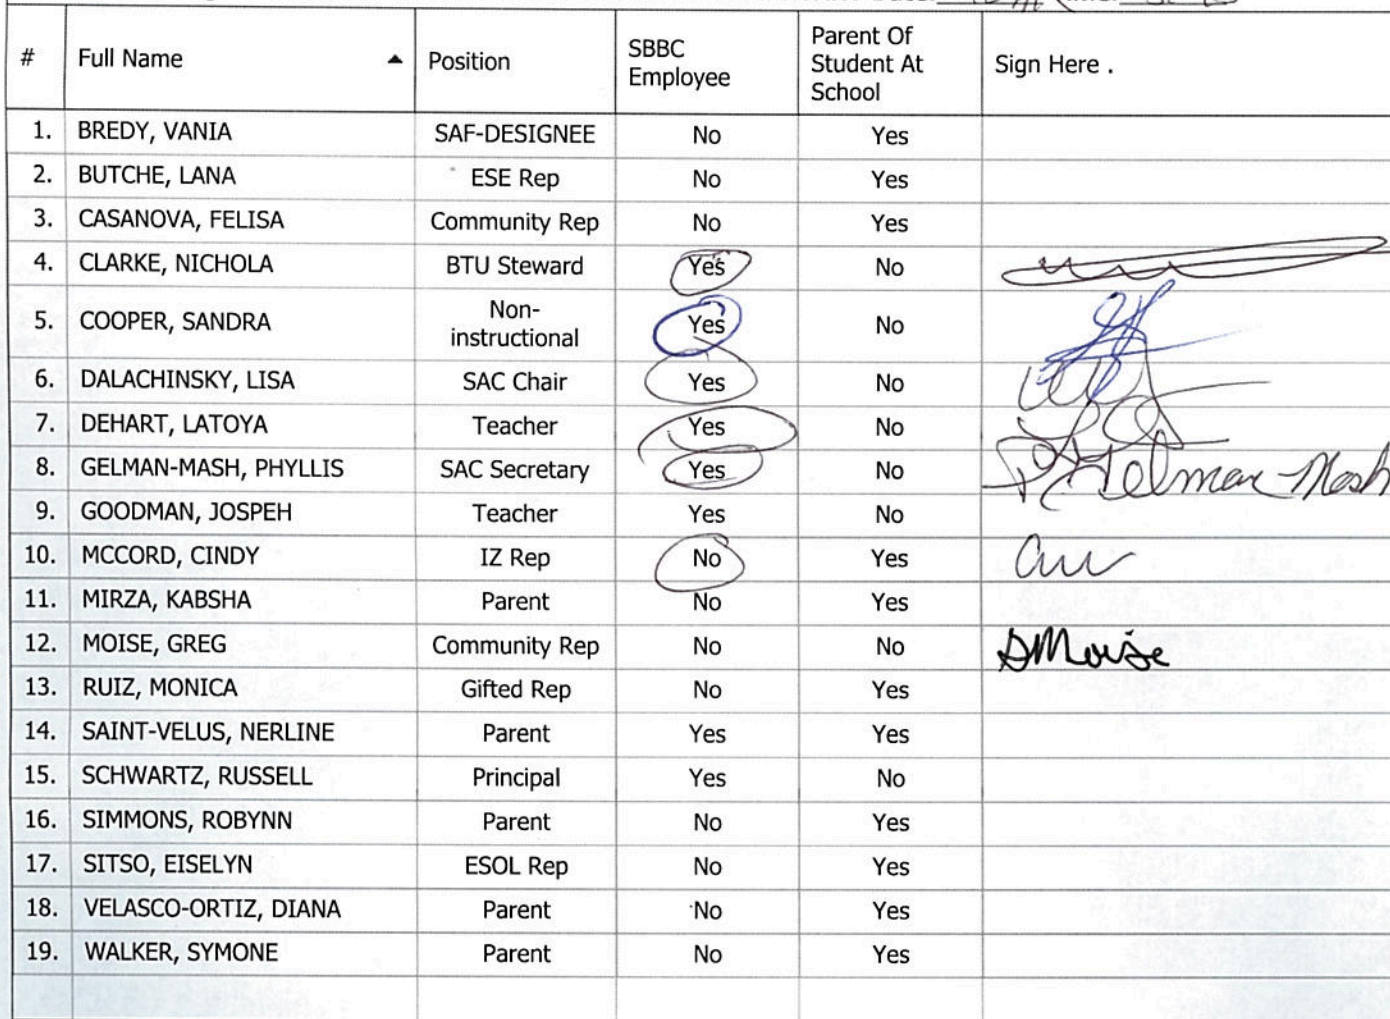 # Full Name ▲ Position SBBC Employee Parent Of Student At School Sign Here .
1. BREDY, VANIA SAF-DESIGNEE No Yes
2. BUTCHE, LANA ESE Rep No Yes
3. CASANOVA, FELISA Community Rep No Yes
4. CLARKE, NICHOLA BTU Steward Yes No
5. COOPER, SANDRA Non-instructional Yes No
6. DALACHINSKY, LISA SAC Chair Yes No
7. DEHART, LATOYA Teacher Yes No
8. GELMAN-MASH, PHYLLIS SAC Secretary Yes No P Gelman-Mash
9. GOODMAN, JOSPEH Teacher Yes No
10. MCCORD, CINDY IZ Rep No Yes
11. MIRZA, KABSHA Parent No Yes
12. MOISE, GREG Community Rep No No GMoise
13. RUIZ, MONICA Gifted Rep No Yes
14. SAINT-VELUS, NERLINE Parent Yes Yes
15. SCHWARTZ, RUSSELL Principal Yes No
16. SIMMONS, ROBYNN Parent No Yes
17. SITSO, EISELYN ESOL Rep No Yes
18. VELASCO-ORTIZ, DIANA Parent No Yes
19. WALKER, SYMONE Parent No Yes